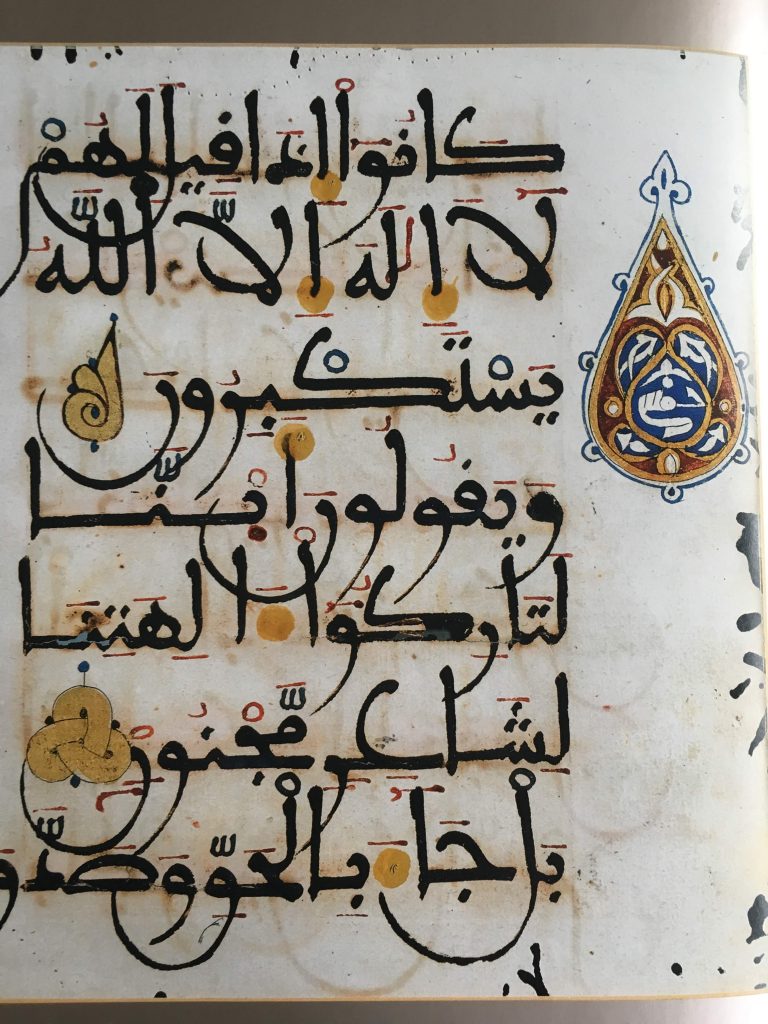 كَانُوٓاْ إِذَا قِيلَ لَهُمْ
لَآ إِلَٰهَ إِلَّا اَللَّهُ
يَسْتَكْبِرُونَ
وَيَقُولُونَ أَئِنَّا
لَتَارِكُوٓاْ ءَالِهَتِنَا
لِشَاعِرٍ مَّجْنُونٍ
بَلْ جَآءَ بِالْحَقِّ وَصَدَّقَ